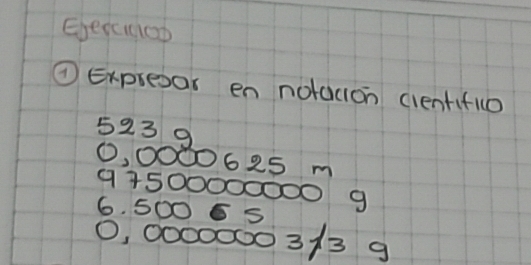 Ejercicios
① Expresar en notación cientifico
523 g
0,0000625 m
9750000000 g
6.500 s
0,0000000313 g